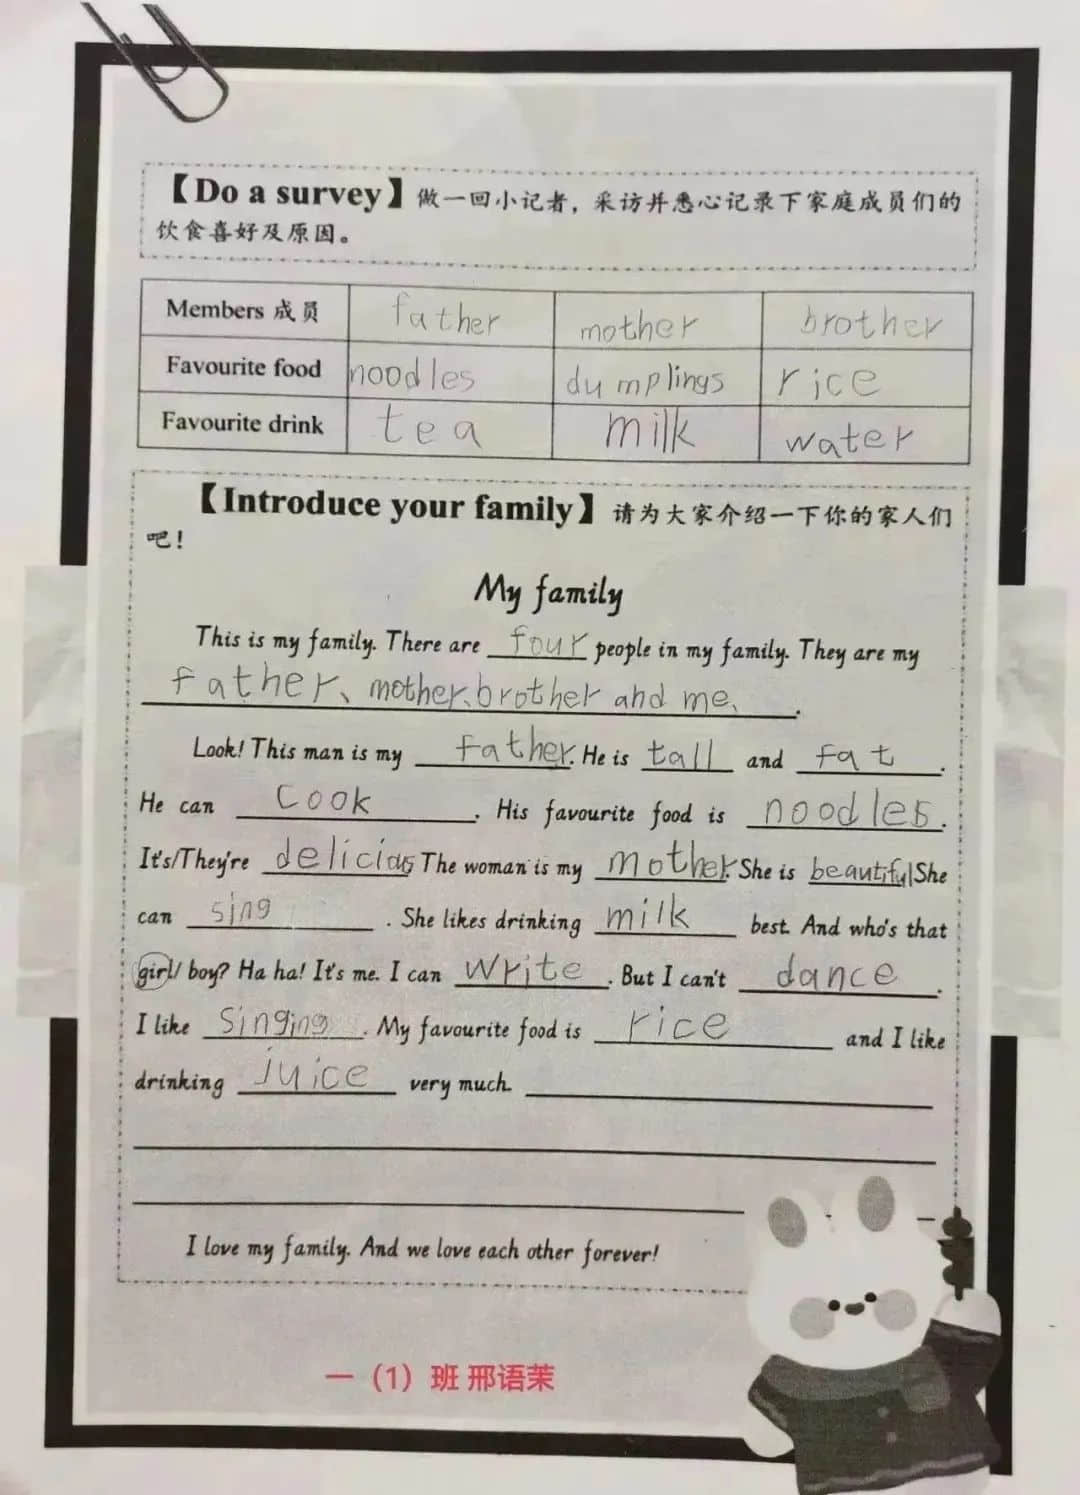 【Do a survey】做一回小记者，采访并悉心记录下家庭成员们的
饮食喜好及原因。
Members 成员 father mother brother
Favourite food noodles dumplings rice
Favourite drink tea milk water
【Introduce your family】请为大家介绍一下你的家人们
吧！
My family
This is my family. There are four people in my family. They are my
father、mother、brother and me、.
Look! This man is my father. He is tall and fat.
He can cook. His favourite food is noodles.
It's/They're delicious. The woman is my mother. She is beautiful She
can sing. She likes drinking milk best. And who's that
girl/ boy? Ha ha! It's me. I can write. But I can't dance.
I like singing. My favourite food is rice and I like
drinking juice very much.
I love my family. And we love each other forever!
一（1）班 邢语茉